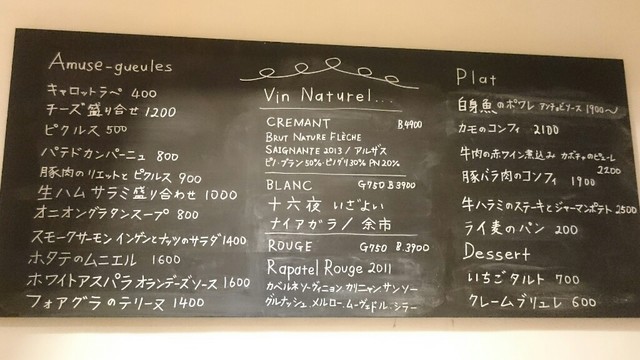 Amuse-gueules
キャロットラペ 400
チーズ盛り合せ 1200
ピクルス 500
パテドカンパーニュ 800
豚肉のリエットとピクルス 900
生ハム サラミ盛り合わせ 1000
オニオングラタンスープ 800
スモークサーモン インゲンとナッツのサラダ 1400
ホタテのムニエル 1600
ホワイトアスパラ オランデーズソース 1600
フォアグラのテリーヌ 1400
Vin Naturel...
CREMANT B.4900
BRUT NATURE FLÈCHE
SAIGNANTE 2013 / アルザス
ピノ・ブラン50%・ピノグリ30% PN20%
BLANC G750 B3900
十六夜 いざよい
ナイアガラ / 余市
ROUGE G750 B.3900
Rapatel Rouge 2011
カベルネソーヴィニョン カリニャン サンソー
グルナッシュ、メルロー、ムーヴェドル、シラー
Plat
白身魚のポワレ アンチョビソース 1900〜
カモのコンフィ 2100
牛肉の赤ワイン煮込み カボチャのピューレ 2200
豚バラ肉のコンフィ 1900
牛ハラミのステーキとジャーマンポテト 2500
ライ麦のパン 200
Dessert
いちごタルト 700
クレームブリュレ 600